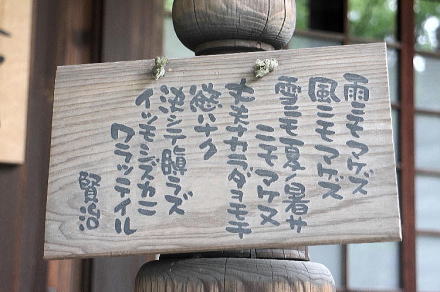 雨ニモマケズ
風ニモマケズ
雪ニモ夏ノ暑サ
ニモマケヌ
丈夫ナカラダヲモチ
慾ハナク
決シテ瞋ラズ
イツモシズカニ
ワラッテイル
賢治